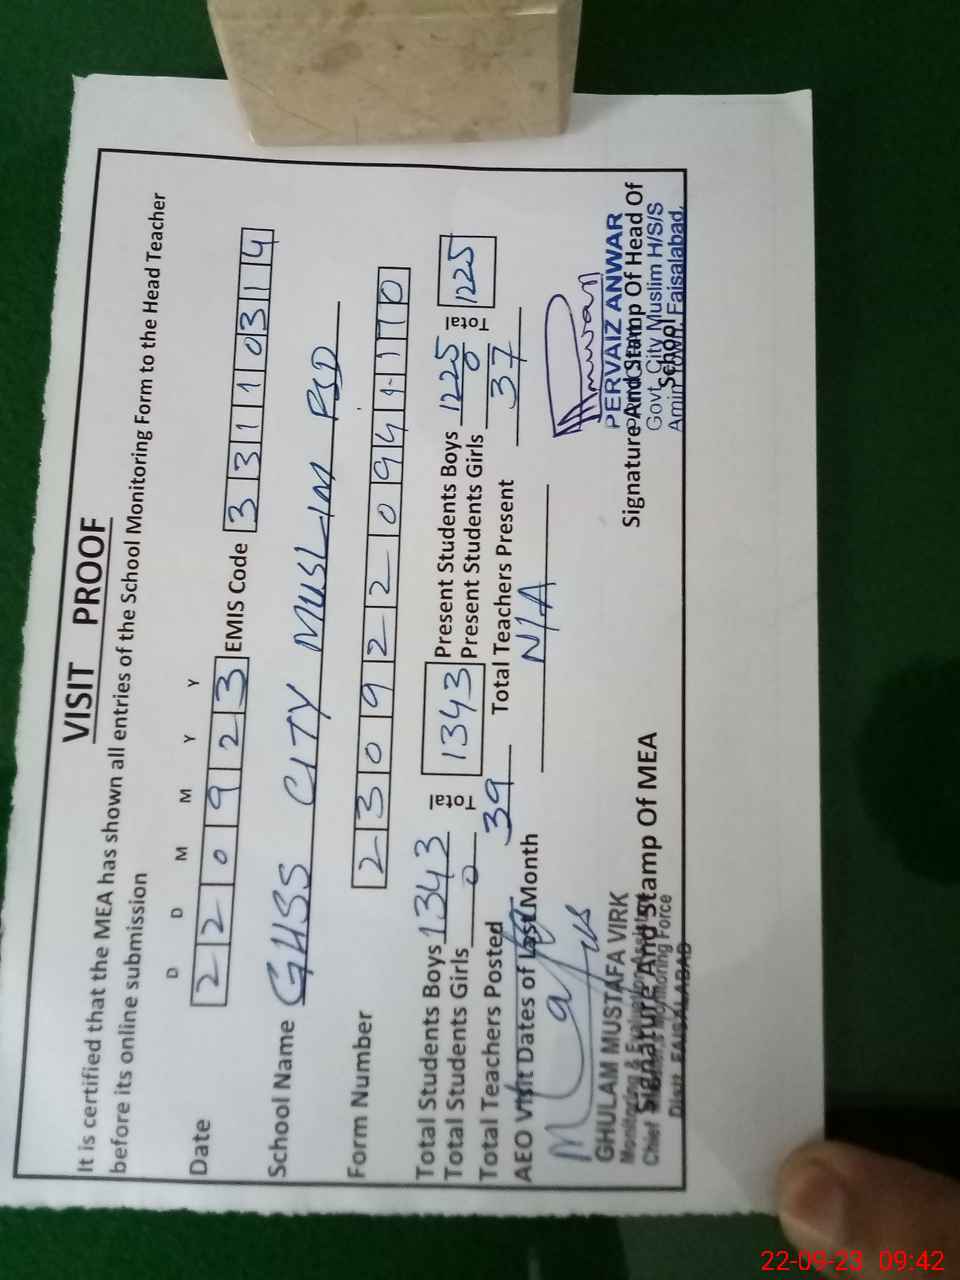 VISIT PROOF
It is certified that the MEA has shown all entries of the School Monitoring Form to the Head Teacher
before its online submission
D D M M Y Y
Date 220923 EMIS Code 33110314
School Name GHSS CITY MUSLIM FSD
Form Number 2309220941170
Total Students Boys 1343 Total 1343 Present Students Boys 1225 Total 1225
Total Students Girls 0 Present Students Girls 0
Total Teachers Posted 39 Total Teachers Present 37
AEO Visit Dates of Last Month N/A
GHULAM MUSTAFA VIRK
Monitoring & Evaluation Assistant
Chief Minister's Monitoring Force
Distt. FAISALABAD
Signature And Stamp Of MEA
Anwar
PERVAIZ ANWAR
Govt. City Muslim H/S/S
Amin Town, Faisalabad.
Signature And Stamp Of Head Of
School
22-09-23 09:42